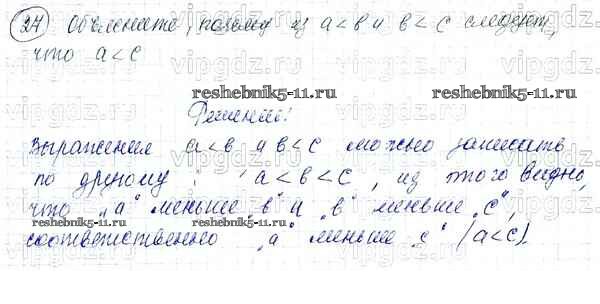 27 Объясните, почему из a < b и b < c следует,
что a < c
reshebnik5-11.ru reshebnik5-11.ru
Решение:
Выражения a < b и b < c можно записать
по другому : a < b < c , из этого видно,
что „a" меньше „b" и „b" меньше „c",
соответственно „a" меньше „c" (a < c).
reshebnik5-11.ru reshebnik5-11.ru